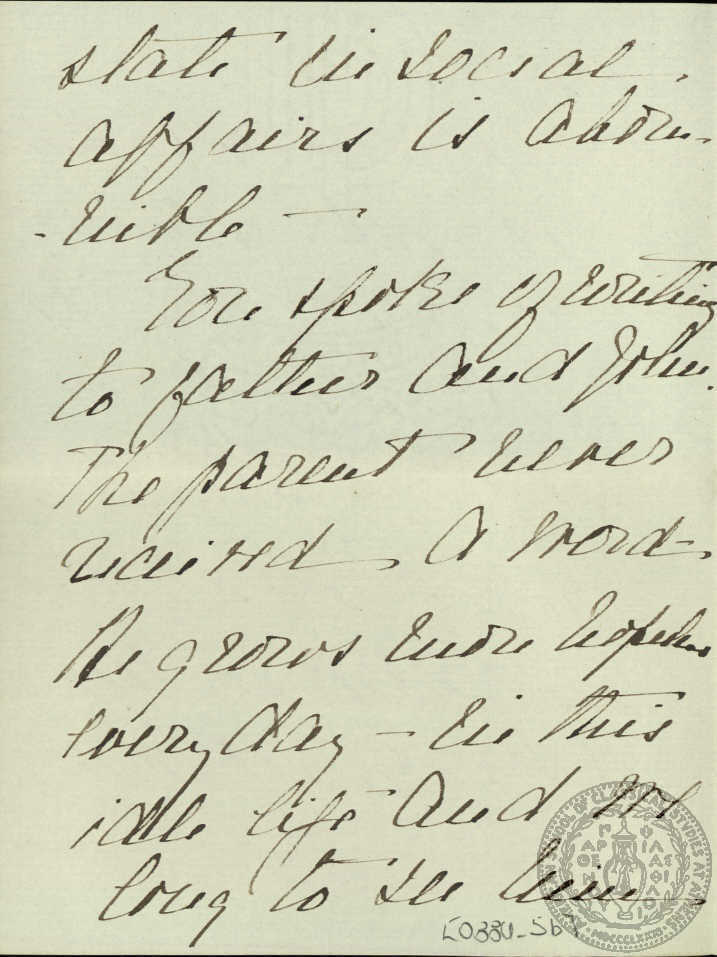 state in social
affairs is abom-
-inible —
You spoke of writing
to father and John.
The parent never
received a word.
He grows more hopeless
every day — in this
idle life and we
long to see him